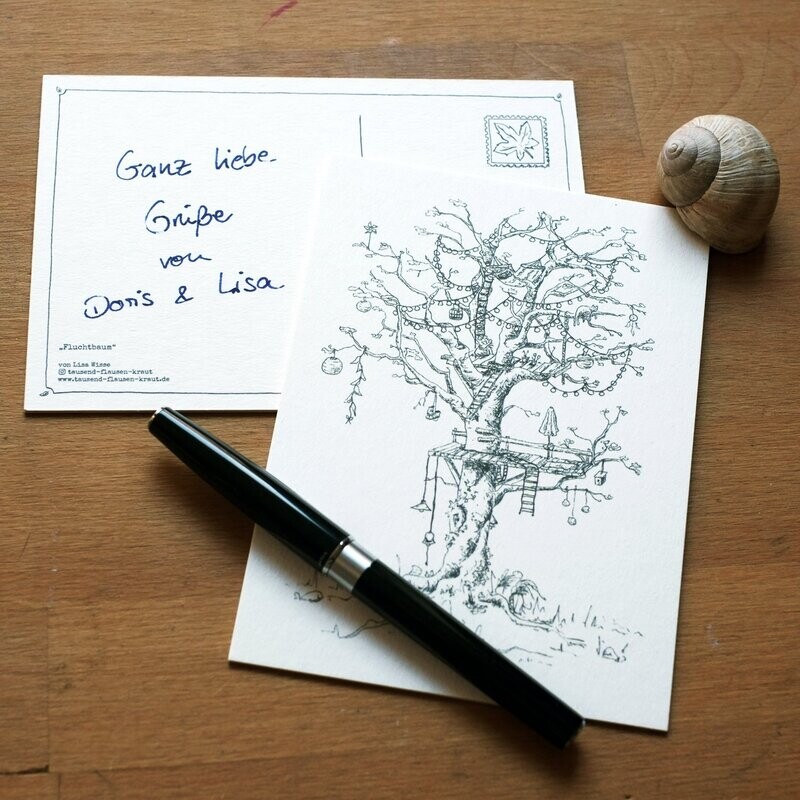 Ganz liebe
Grüße
von
Doris & Lisa
„Fluchtbaum“
von Lisa Wisse
tausend-flausen-kraut
www.tausend-flausen-kraut.de